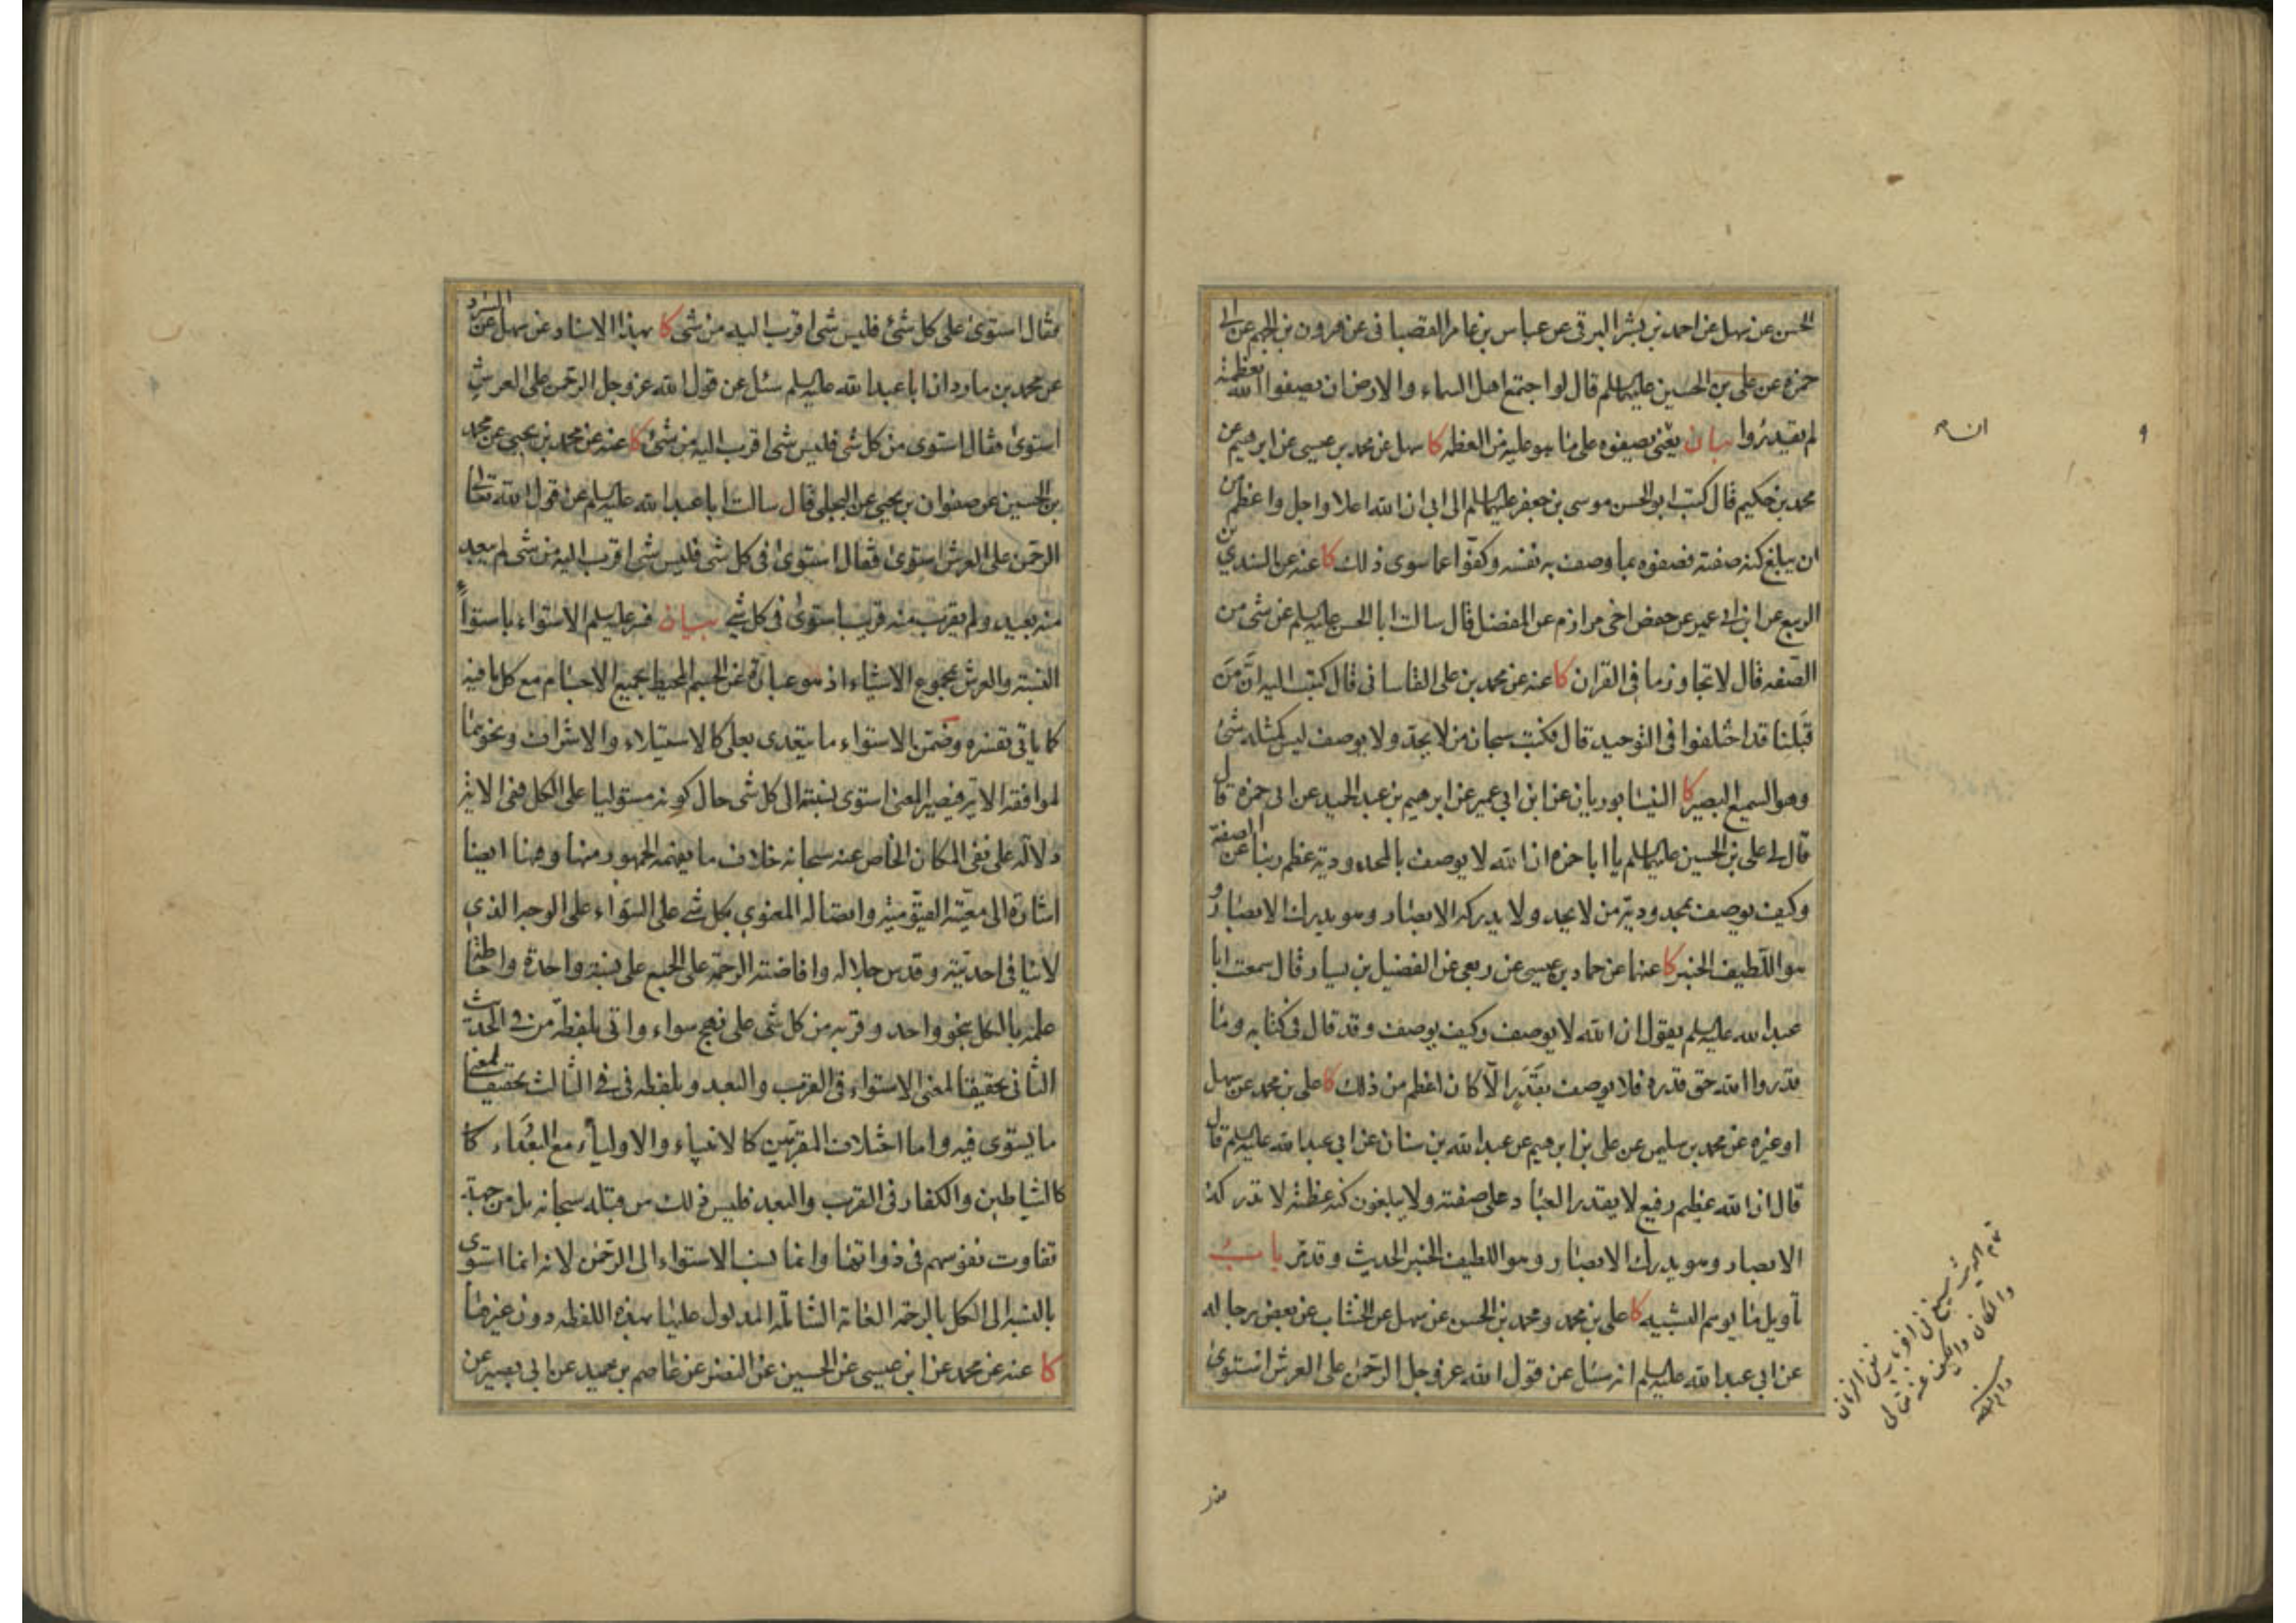 الحسن عن سهل عن احمد بن بشر البرقى عن عباس بن عامر القصبانى عن هرون بن الجهم عن ابى
حمزة عن على بن الحسين عليهما السلم قال لو اجتمع اهل السماء والارض ان يصفوا الله بعظمته
لم يقدروا بيان يعنى يصفوه على ما هو عليه من العظمه كا سهل عن محمد بن عيسى عن ابرهيم عن
محمد بن حكيم قال كتب ابو الحسن موسى بن جعفر عليهما السلم الى ابى ان الله اعلا واجل واعظم من
ان يبلغ كنه صفته فصفوه بما وصف به نفسه وكفّوا عما سوى ذلك كا عنه عن السندي بن
الربيع عن ابن ابى عمير عن حفص اخى مرازم عن المفضل قال سالت ابا الحسن عليه السلم عن شى من
الصّفه قال لا تجاوز ما فى القران كا عنه عن محمد بن على القاسانى قال كتبت اليه انّ مَن
قِبَلَنا قد اختلفوا فى التوحيد قال فكتب سبحان من لا يحدّ ولا يوصف ليس كمثله شئ
وهو السميع البصير كا النيسابوريان عن ابن ابى عمير عن ابرهيم بن عبد الحميد عن ابى حمزه قال
قال لى على بن الحسين عليهما السلم يا ابا حمزه ان الله لا يوصف بالمحدودية عظم ربنا عن الصفة
وكيف يوصف بمحدودية من لا يحد ولا يدركه الابصار وهو يدرك الابصار و
هو اللّطيف الخبير كا عنهما عن حماد بن عيسى عن ربعى عن الفضيل بن يسار قال سمعت ابا
عبد الله عليه السلم يقول ان الله لا يوصف وكيف يوصف وقد قال فى كتابه وما
قدروا الله حق قدره فلا يوصف بقَدَرٍ الّا كان اعظم من ذلك كا على بن محمد عن سهل
او غيره عن محمد بن سليمن عن على بن ابرهيم عن عبد الله بن سنان عن ابى عبد الله عليه السلم قال
قال ان الله عظيم رفيع لا يقدر العباد على صفته ولا يبلغون كنه عظمته لا تدركه
الابصار وهو يدرك الابصار وهو اللطيف الخبير الحديث وقد مّر باب
تأويل ما يوهم التشبيه كا على بن محمد ومحمد بن الحسن عن سهل عن الخشاب عن بعض رجاله
عن ابى عبد الله عليه السلم انه سئل عن قول الله عز وجل الرحمن على العرش استوى
فقال استوى على كل شئ فليس شى اقرب اليه من شى كا بهذا الاسناد عن سهل عن السرّاد
عن محمد بن مارد ان ابا عبد الله عليه السلم سئل عن قول الله عز وجل الرحمن على العرش
استوى فقال استوى من كل شى فليس شى اقرب اليه من شئ كا عنه عن محمد بن يحيى عن محمد
بن الحسين عن صفوان بن يحيى عن البجلى قال سالت ابا عبد الله عليه السلم عن قول الله تعالى
الرحمن على العرش استوى فقال استوى فى كل شى فليس شى اقرب اليه من شى لم يبعد
منه بعيد ولم يقرب منه قريب استوى فى كل شى بيان فسر عليه السلم الاستواء باستواء
النسبة والعرش بمجموع الاشياء اذ هو عبارة عن الجسم المحيط بجميع الاجسام مع كل ما فيه
كما ياتى تفسيره وضمّن الاستواء ما يتعدى بعلى كالاستيلاء والاشراف ونحوهما
لموافقة الاية فيصير المعنى استوى نسبته الى كل شى حال كونه مستوليا على الكل ففى الاية
دلالة على نفى المكان الخاص عنه سبحانه خلاف ما يفهمه الجمهور منها وفيها ايضا
اشارة الى معيّته القيّومية واتصاله المعنوي بكل شى على السّواء على الوجه الذي
لا ينافى احديته وقدس جلاله وافاضته الرحمة على الجميع على نسبة واحدة واحاطة
علمه بالكل بنحو واحد وقربه من كل شى على نهج سواء واتى بلفظة من فى الحديث
الثانى تحقيقا لمعنى الاستواء فى القرب والبعد وبلفظه فى فى الثالث تحقيقا لمعنى
ما يستوى فيه واما اختلاف المقرّبين كالانبياء والاولياء مع البُعَداء كا
كالشياطين والكفار فى القرب والبعد فليس ذلك من قبله سبحانه بل من جهة
تفاوت نفوسهم فى ذواتها وانما نسب الاستواء الى الرحمن لانه انما استوى
بالنسبة الى الكل بالرحمة العامة الشاملة المدلول عليها بهذه اللفظه دون غيرها
كا عنه عن محمد عن ابن عيسى عن الحسين عن النضر عن عاصم بن حميد عن ابى بصير عن